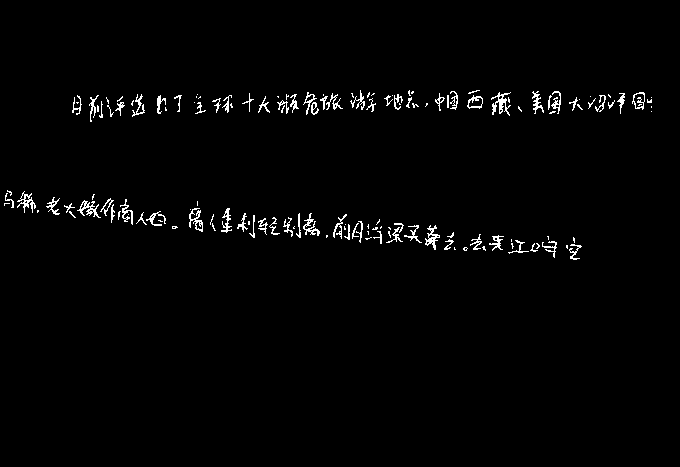 目前评选出了全球十大濒危旅游地点,中国西藏、美国大沼泽国
马稀,老大嫁作商人妇。商人重利轻别离,前月浮梁买茶去。去来江口守空